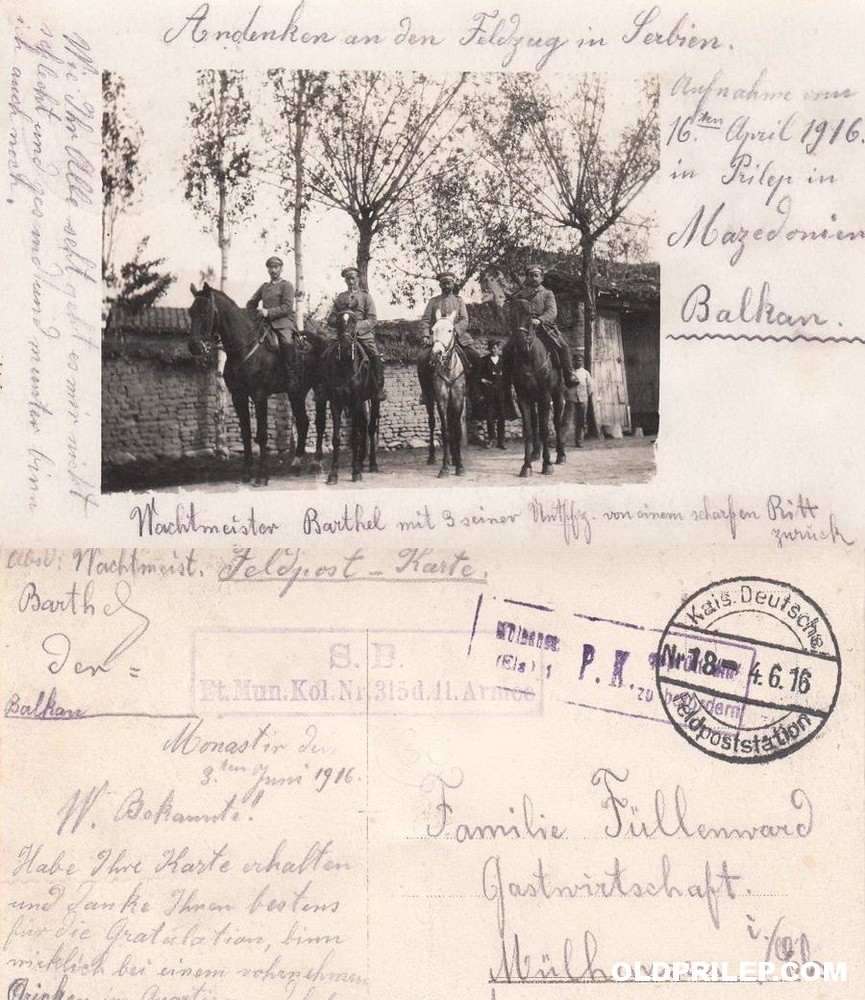 Andenken an den Feldzug in Serbien.
Aufnahme vom
16.ten April 1916.
in Prilep in
Mazedonien
Balkan.
Wie Ihr Alle seht geht es mir nicht
schlecht und gesund und munter binn
ich auch noch.
Wachtmeister Barthel mit 3 seiner Untffz. von einem scharfen Ritt
zurück
Absd: Wachtmeist.
Barthel
Feldpost-Karte.
Balkan
S. B.
Et. Mun. Kol. Nr. 315 d. 11. Armee
(Els.)
P. K.
zu befördern
Kais. Deutsche
Nr. 18 4.6.16
Feldpoststation
Monastir den
3.ten Juni 1916.
W. Bekannte!
Habe Ihre Karte erhalten
und danke Ihnen bestens
für die Gratulation, binn
wirklich bei einem vohrnehmen
Familie Füllenward
Gastwirtschaft.
i./Els
OLDPRILEP.COM